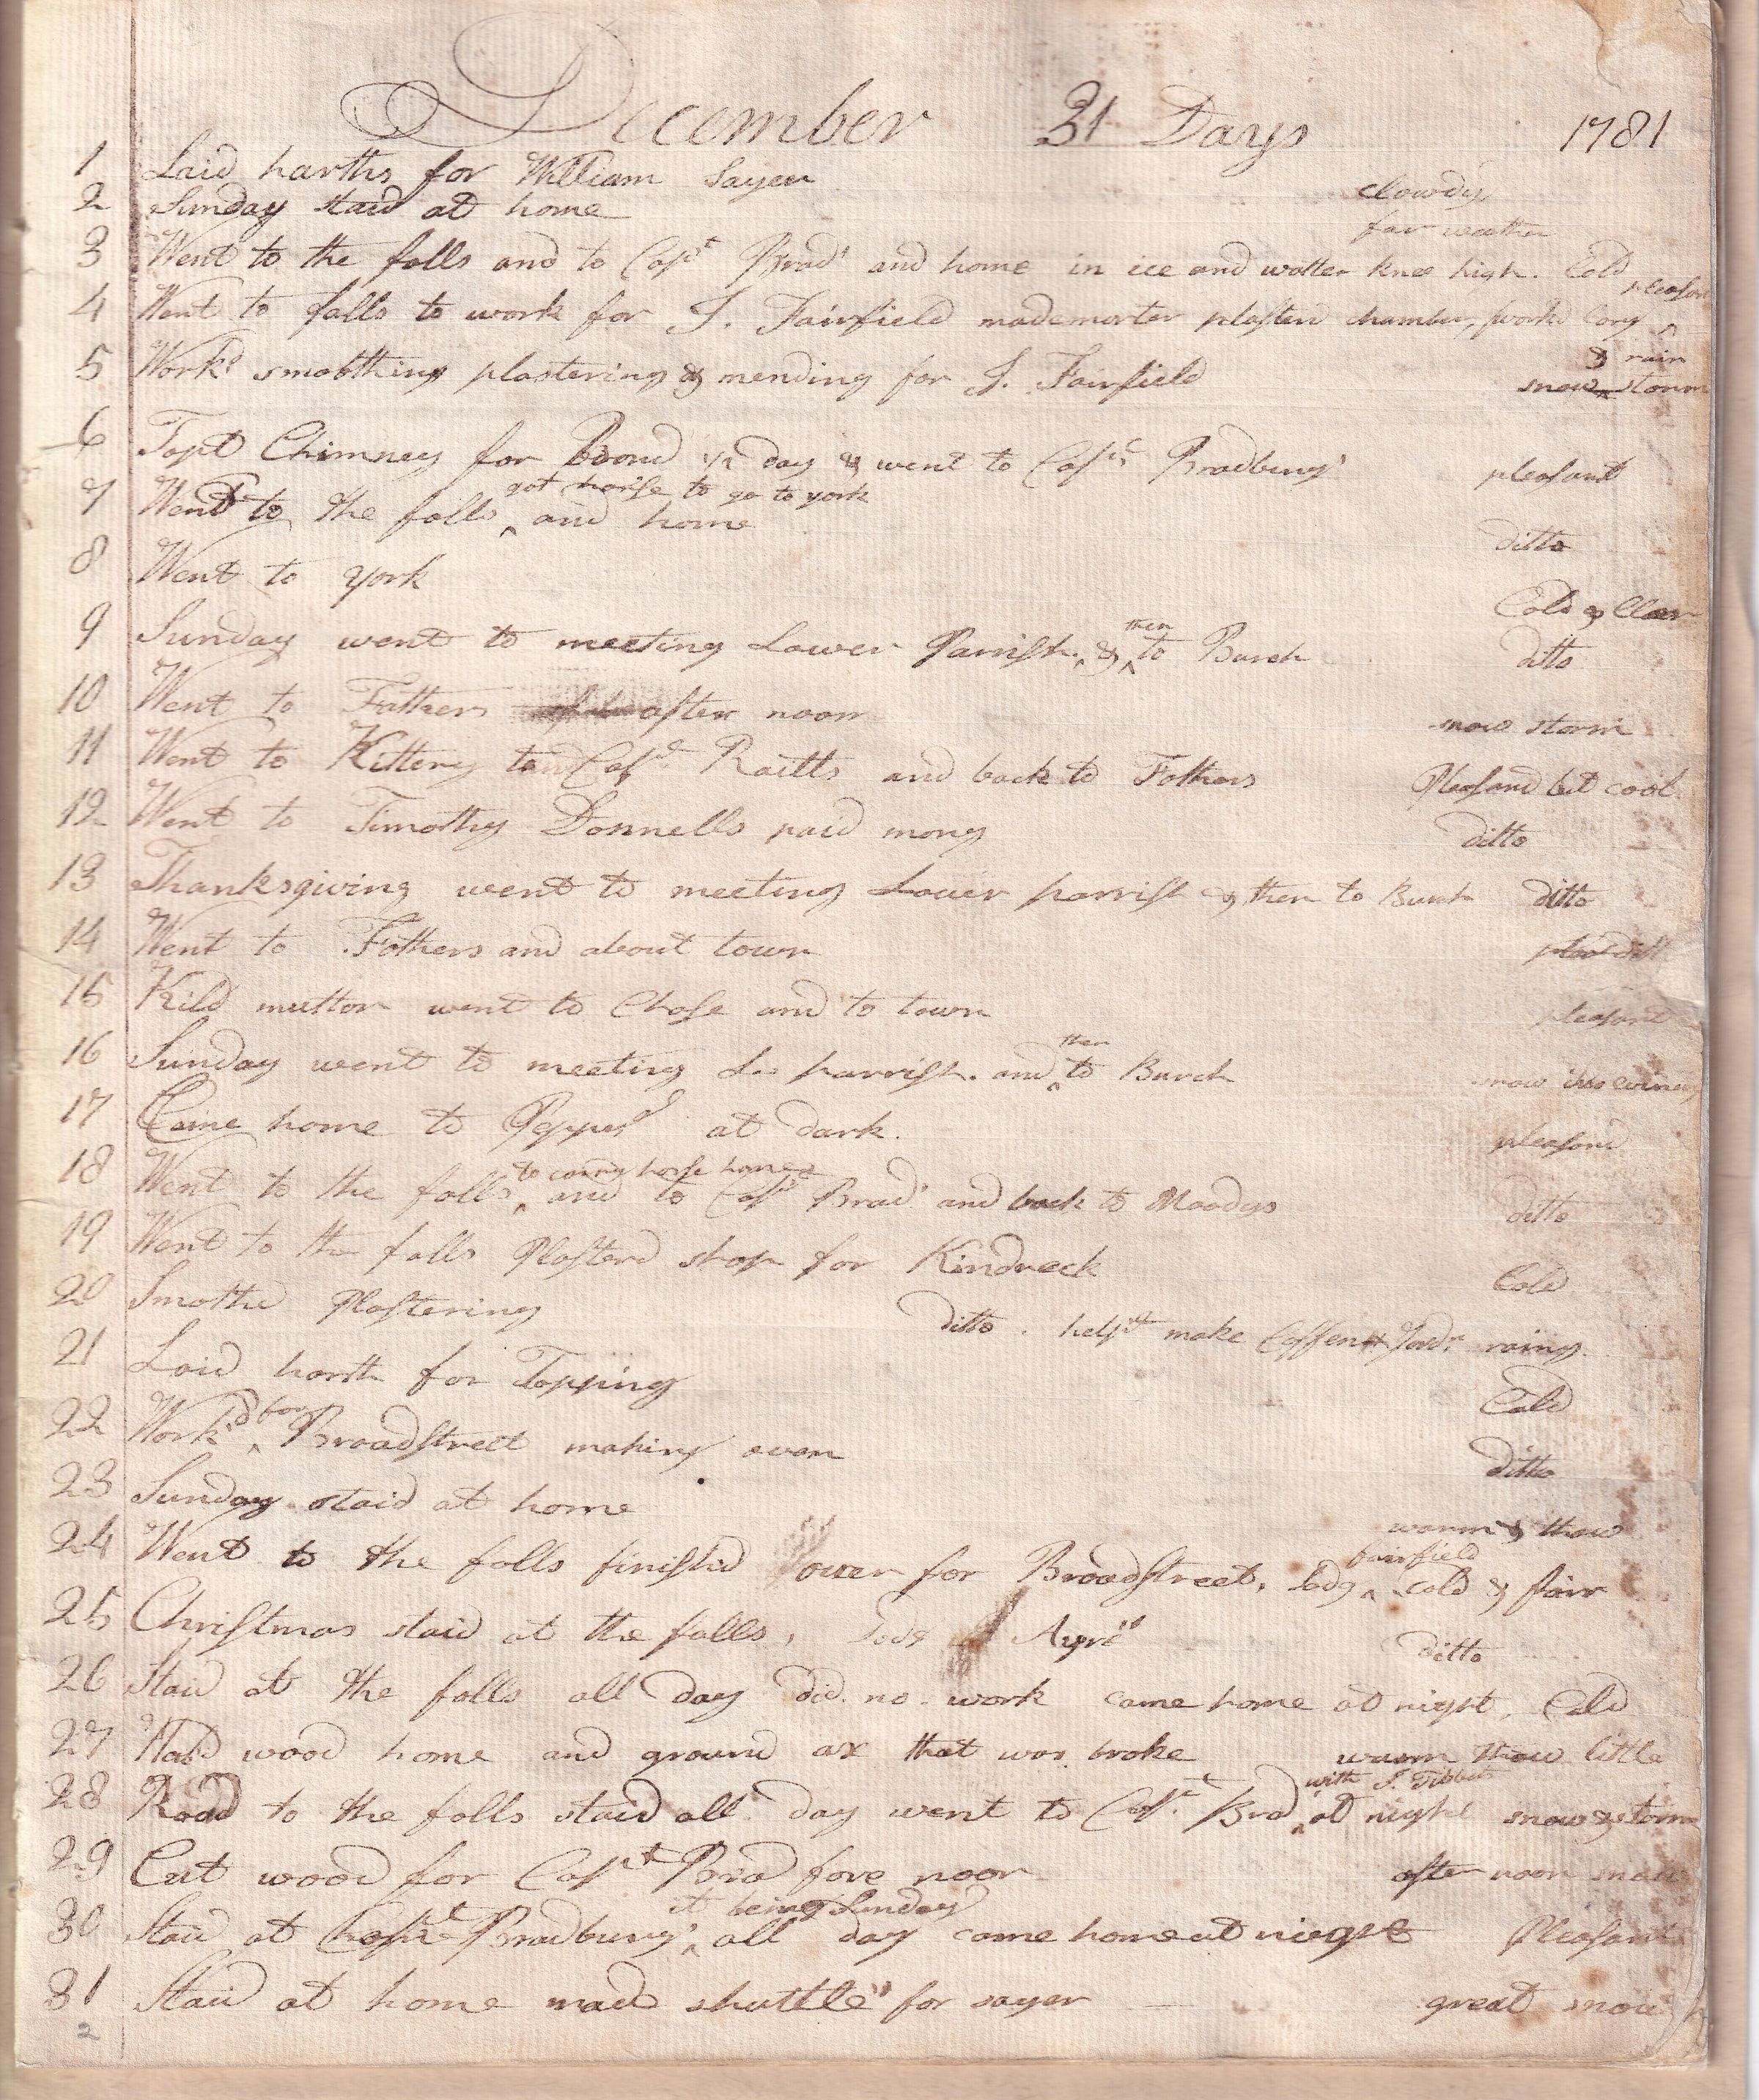 December 31 Days 1781
1 Laid harths for William Sayer clowdy
2 Sunday staid at home fair weather
3 Went to the falls and to Capt Brads and home in ice and watter knee high. Cold
4 Went to falls to work for J. Fairfield made morter plasterd chamber, workd long pleasant
5 Workd smoothing plastering & mending for J. Fairfield snow & rain storm
6 Topt Chimney for 1/2 day & went to Capt Bradburys pleasant
7 Went to the falls got horse to go to york and home ditto
8 Went to york Cold & Clear
9 Sunday went to meeting Lower Parrish. & then to Burch ditto
10 Went to Fathers after noon snow storm
11 Went to Kittery to Capt Raitts and back to Fathers Pleasand but cool
12 Went to Timothy Donnells paid mony ditto
13 Thanksgiving went to meeting Lower parrish & then to Burch ditto
14 Went to Fathers and about town
15 Kild mutton went to Chase and to town pleasant
16 Sunday went to meeting Lo parrish. and then to Burch snow this evening
17 Came home to at dark. pleasand
18 Went to the falls to carry horse home and to Capt Brads and back to Moodys ditto
19 Went to the falls Plasterd shop for Kindreck Cold
20 Smothd Plastering ditto. helpt make Coffen rainy.
21 Laid harth for Topping Cold
22 Workd for Broadstreet making oven ditto
23 Sunday staid at home warm & thaw
24 Went to the falls finishd oven for Broadstreet, Lodg fairfield cold & fair
25 Christmas staid at the falls, Lodg Ayres ditto
26 Staid at the falls all day did no work came home at night, Cold
27 Hald wood home and ground ax that was broke warm thaw little
28 Road to the falls staid all day went to Capt Brad with J. Tibbets at night snow storm
29 Cut wood for Capt Brad fore noon after noon snow
30 Staid at Capt Bradburys it being Sunday all day came home at nieght Pleasant
31 Staid at home made shuttles for sayer great snow
2